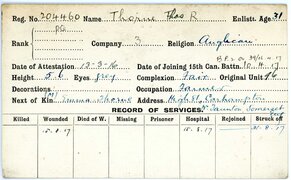 Reg. No. 204460 Name Thorne Thos R Enlistt. Age 31
Rank Pte Company 3 Religion Anglican
Date of Attestation 13-3-16 Date of Joining 15th Can. Battn.
Height 5.6 Eyes grey Complexion Fair Original Unit 96
Decorations Occupation Farmer
Next of Kin Emma Thorne Address High St Carhampton
RECORD OF SERVICES Taunton Somerset
Killed Wounded Died of W. Missing Prisoner Hospital Rejoined Struck off
15.8.17 15.8.17 31-8-17